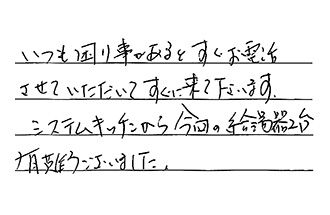 いつも困り事があるとすぐお電話
させていただいてすぐに来て下さいます。
システムキッチンから今回の給湯器2台
有難うございました。